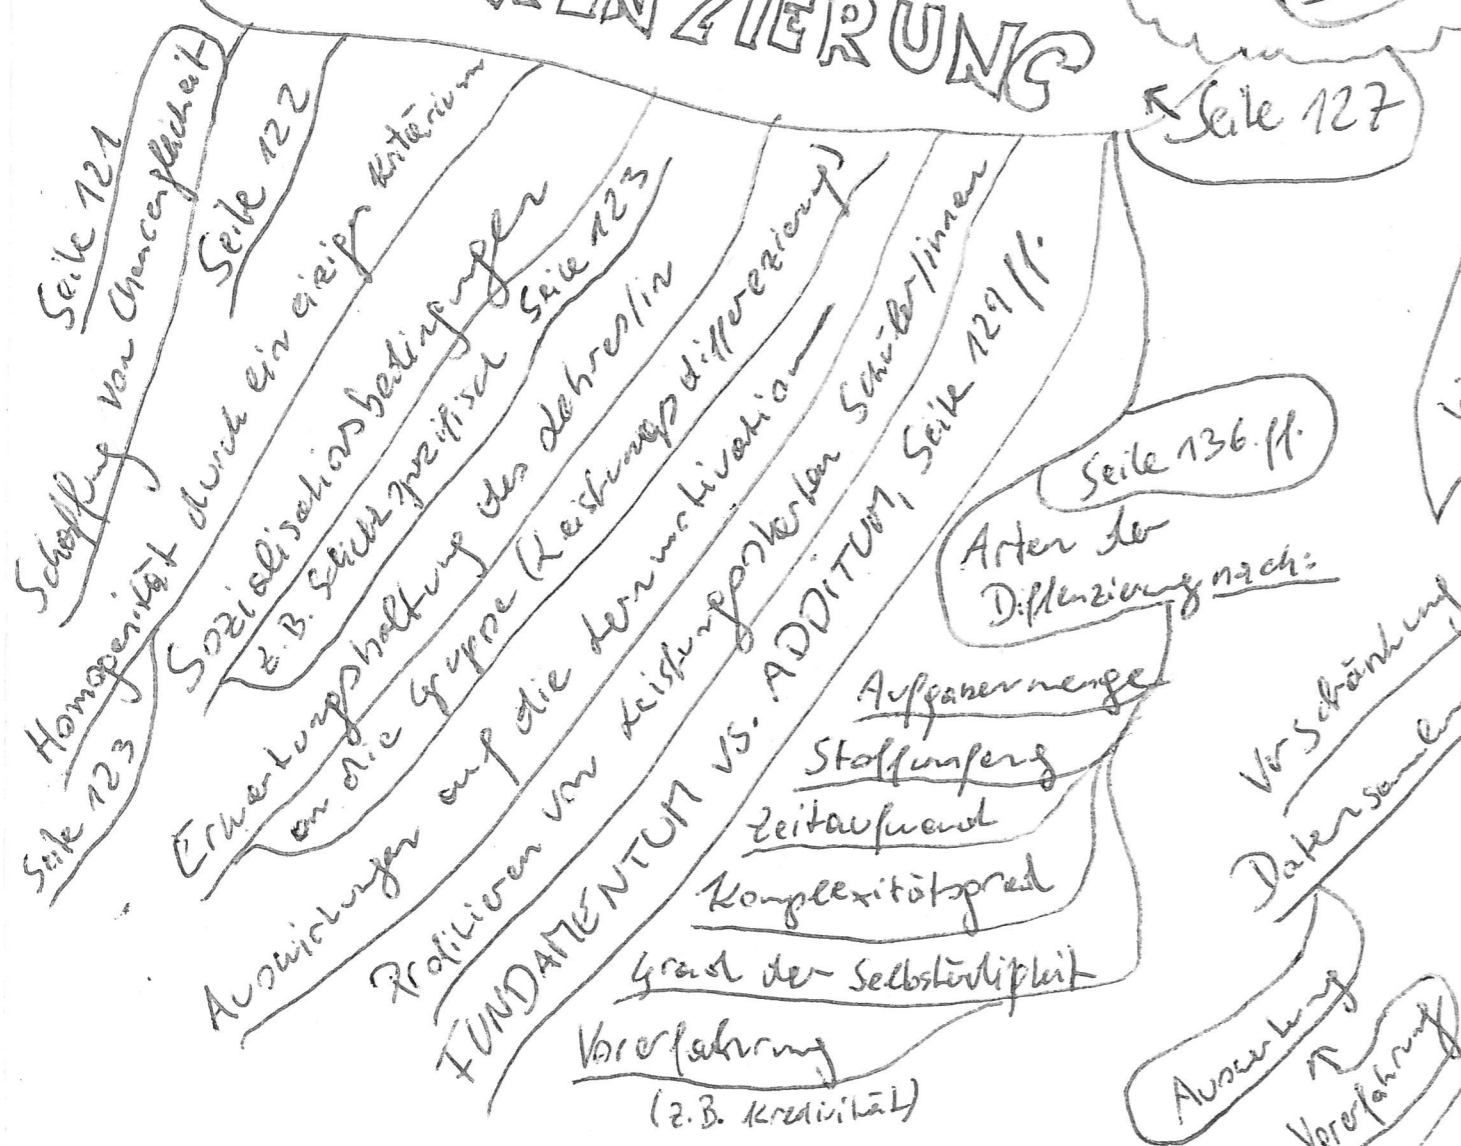 ENZIERUNG
Seite 127
Seite 121
Schaffung von Chancengleichheit
Seite 122
Homogenität durch ein einziges Kriterium
Seite 123
Sozialisationsbedingungen
z.B. Schichtspezifisch Seite 123
Erwartungshaltung des Lehrers/in
an die Gruppe (Leistungsdifferenzierung)
Auswirkungen auf die Lernmotivation
Profitieren von Leistungsstarken Schüler/innen
FUNDAMENTUM vs. ADDITUM, Seite 129 ff.
Seite 136.ff.
Arten der
Differenzierung nach:
Aufgabenmenge
Stoffumfang
Zeitaufwand
Komplexitätsgrad
Grad der Selbständigkeit
Vorerfahrung
(z.B. Kreativität)
Datensammlun
Auswertung
Vorerfahrung